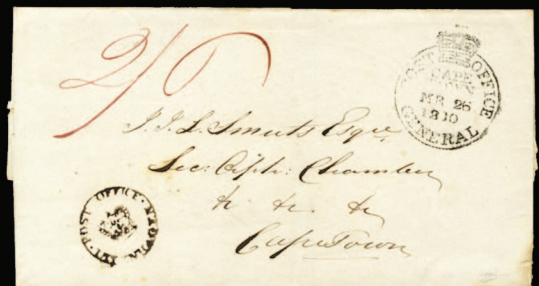 2/6
POST OFFICE
CAPE
TOWN
MR 26
GENERAL
J. J. L. Smuts Esqre
Sec: Orph: Chamber
&c &c &c
Cape Town
POST OFFICE